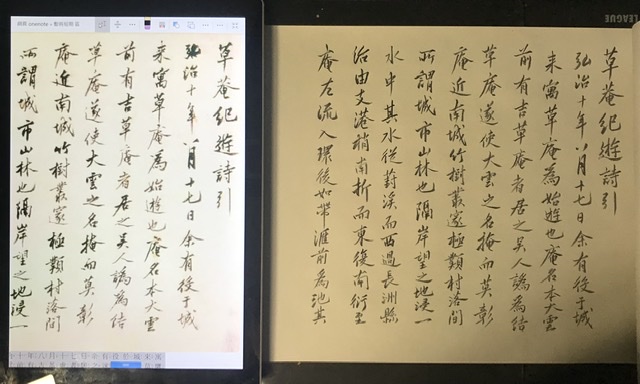 onenote
草庵紀遊詩引
弘治十年八月十七日余有役于城
來寓草庵為始遊也庵名本大雲
前有吉草庵者居之吳人譌為結
草庵遂使大雲之名掩而莫彰
庵近南城竹樹叢邃極類村落間
所謂城市山林也隔岸望之地浸一
LEAGUE
草庵紀遊詩引
弘治十年八月十七日余有役于城
來寓草庵為始遊也庵名本大雲
前有吉草庵者居之吳人譌為結
草庵遂使大雲之名掩而莫彰
庵近南城竹樹叢邃極類村落間
所謂城市山林也隔岸望之地浸一
水中其水從葑溪而西過長洲縣
治由支港稍南折而東復南衍至
庵左流入環後如帶匯前為池其